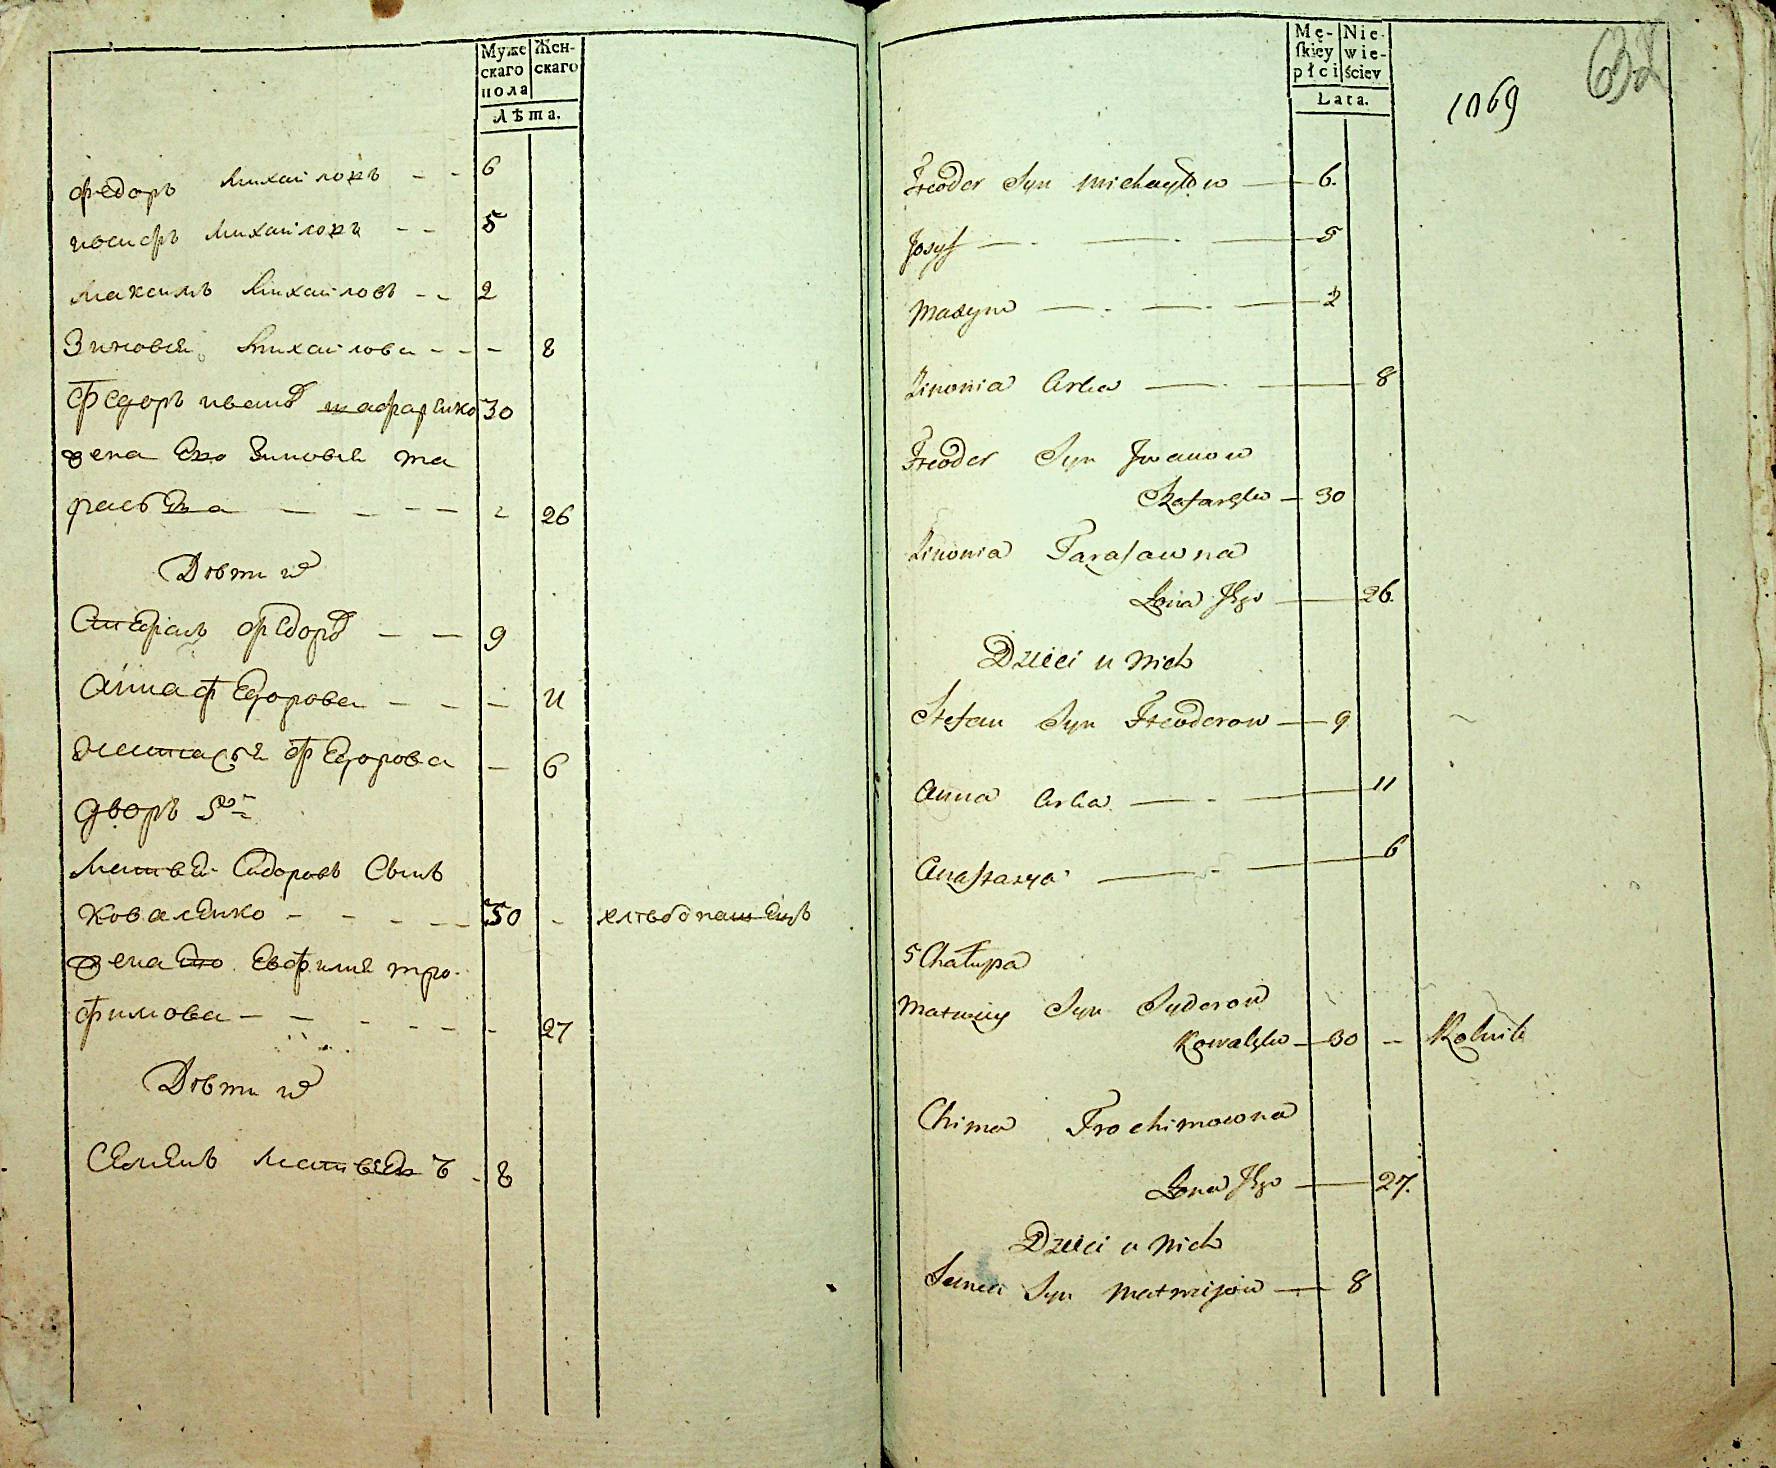 Муже Жен-
скаго скаго
пола
Лѣта.
федоръ михайловъ - - 6
иосифъ михайловъ - - 5
максимъ михайловъ - - 2
Зиновея михайлова - - - 8
Федоръ ивановъ шафаренко 30
жена Его Зиновея та
расовна - - - - - 26
Дѣти ихъ
Стефанъ федоровъ - - 9
Анна федорова - - - 11
Анастасея федорова - 6
дворъ 5й
Матвей Сидоровъ Сынъ
коваленко - - - - - 30 - хлѣбопашецъ
жена Его Евфимия тро-
фимова - - - - - - - 27
Дѣти ихъ
Семенъ матвеевъ - 8
Mę- Nie-
skiey wie-
płci ściey
Lata.
1069
632
Fteodor Syn Michayłow — 6.
Jozyf — . — . — 5
Maxym — . — . — 2
Zinowia Corka — . — 8
Fteodor Syn Iwanow
Szafaręko — 30
Zinowia Tarasowna
Żona Jego — 26.
Dzieci u nich
Stefan Syn Fteodorow — 9
Anna Corka — . — 11
Anastazya — . — 6
5 Chałupa
Matwiey Syn Sydorow
Kowalęko — 30 — Rolnik
Chima Trochimowna
Żona Jego — 27.
Dzieci u nich
Semen Syn Matwijow — 8